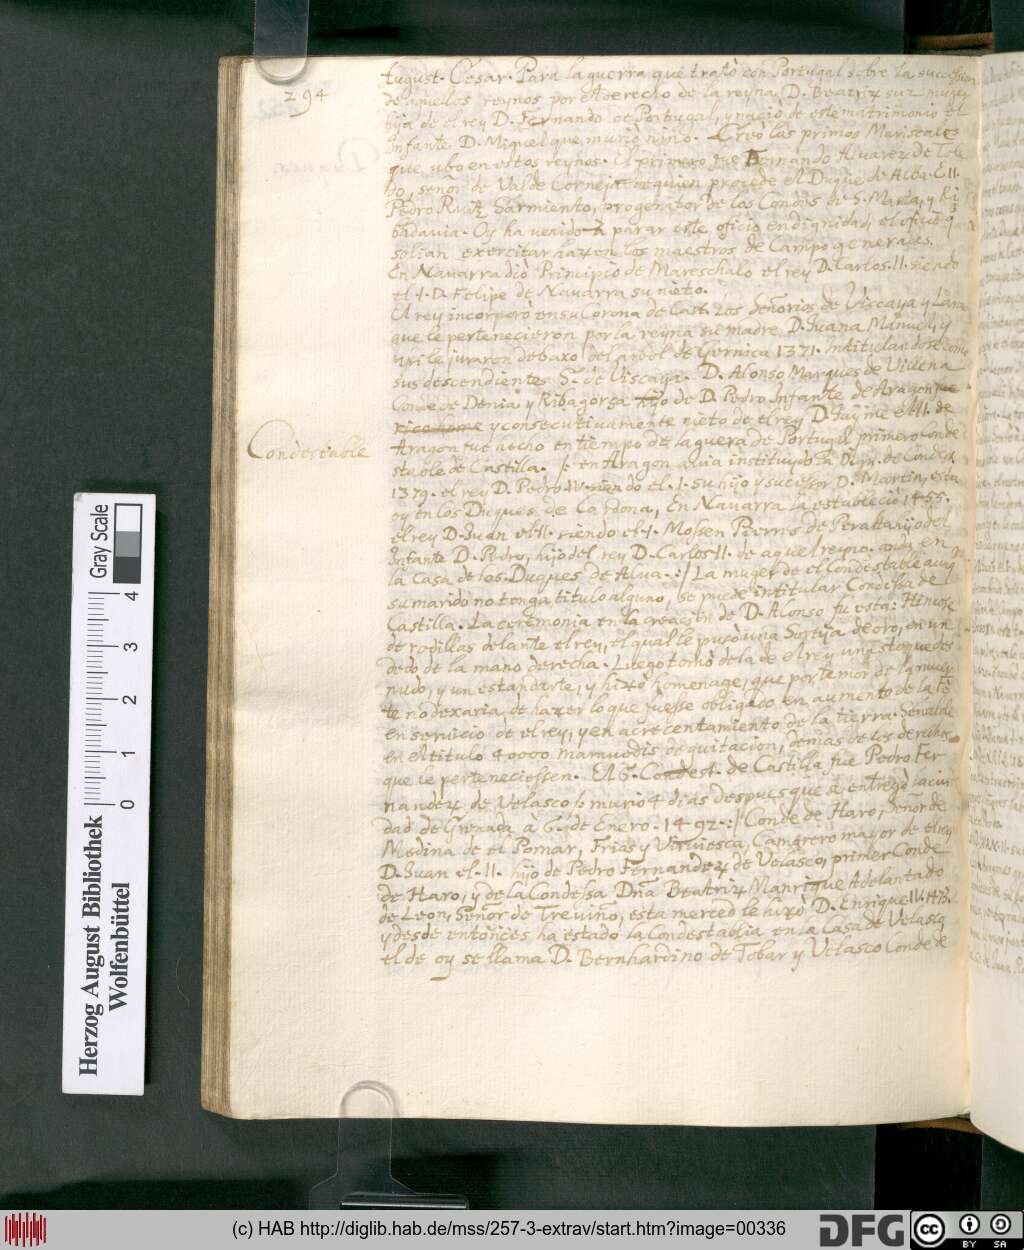 294
August. Cesar. Para la guerra que trató con Portugal sobre la succession
de aquellos reynos por el derecho de la reyna D. Beatriz su 2. muger
hija de el rey D. Fernando de Portugal, y nació de este matrimonio el
Infante D. Miguel que murió niño. Creó los primos Mariscales
que ubo en estos reynos. El primero fue Fernando Alvarez de Tole
do, señor de Valde Corneja de quien procede el Duque de Alba. El II.
Pedro Ruiz Sarmiento, progenitor de los Condes de S. Marta, y Ri
badavia. Oy ha venido à parar este oficio en dignidad, el oficio q
solian exercitar hazen los maestros de Campo generales.
En Navarra diò Principio de Mareschalo el rey D. Carlos. II. siendo
el I. D. Felipe de Navarra su nieto.
El rey incorporó en su Corona de Cast. Los Señorios de Viscaya y Lara
que le pertenecieron por la reyna su madre D. Juana Manuel, y
le juraron debaxo del arbol de Gernica 1371. Intitulandose como
sus descendientes S. de Viscaya. D. Alonso Marques de Villena
Conde de Denia y Ribagorsa hijo de D. Pedro Infante de Aragon
y consecutivamente nieto de el rey D. Jayme el II. de
Condestable
Aragon fue hecho en tiempo de la guera de Portugal primero Conde
stable de Castilla. en Aragon avia instituydo la Dign. de Condest.
1379. el rey D. Pedro IV. siendo el I. su hijo y sucessor D. Martin, esta
oy en los Duques de Cardona, En Navarra la estableció 1455.
el rey D. Juan el II. siendo el I. Mossen Pierres de Peralta hijo del
Infante D. Pedro, hijo del rey D. Carlos II. de aquel reyno. en
la Casa de los Duques de Alva. :/ La muger de el Condestable aunq
su marido no tenga titulo alguno, se puede intitular Condessa de
Castilla. La ceremonia en la creación de D. Alonso fu esta: Hincose
de rodillas delante el rey, el qual le pusó una Sortija de oro, en un
dedo de la mano derecha. Luego tomó de la de el rey un estoque des
nudo, y un estandarte, y hizó homenage, que por temor de la muer
te no dexaria de hazer lo que fuesse obligado en aumento de la fe
en servicio de el rey, y en acrecentamiento de la tierra. Señalóle
en el titulo 40000 maravedis de quitacion, demas de los derechos
que le perteneciessen. El 6. Condest. de Castilla fue Pedro Fer
nandez de Velasco murió 4 dias despues que se entregó la ciu
dad de Grenada à 6. de Enero. 1492. :/ Conde de Haro, Señor de
Medina de el Pomar, Frias y Virviesca, Camarero mayor de el rey
D. Juan el II. hijo de Pedro Fernandez de Velasco, primer Conde
de Haro, y de la Condessa Dña Beatriz Manrique Adelantado
de Leon, Señor de Treviño, esta merced le hizó D. Enrique IV. 1473.
y desde entonces ha estado la Condestablia en la Casa de Velasco
el de oy se llama D. Bernhardino de Tobar y Velasco Conde de
Herzog August Bibliothek
Wolfenbüttel
Gray Scale
0 1 2 3 4
(c) HAB http://diglib.hab.de/mss/257-3-extrav/start.htm?image=00336
DFG
cc BY SA